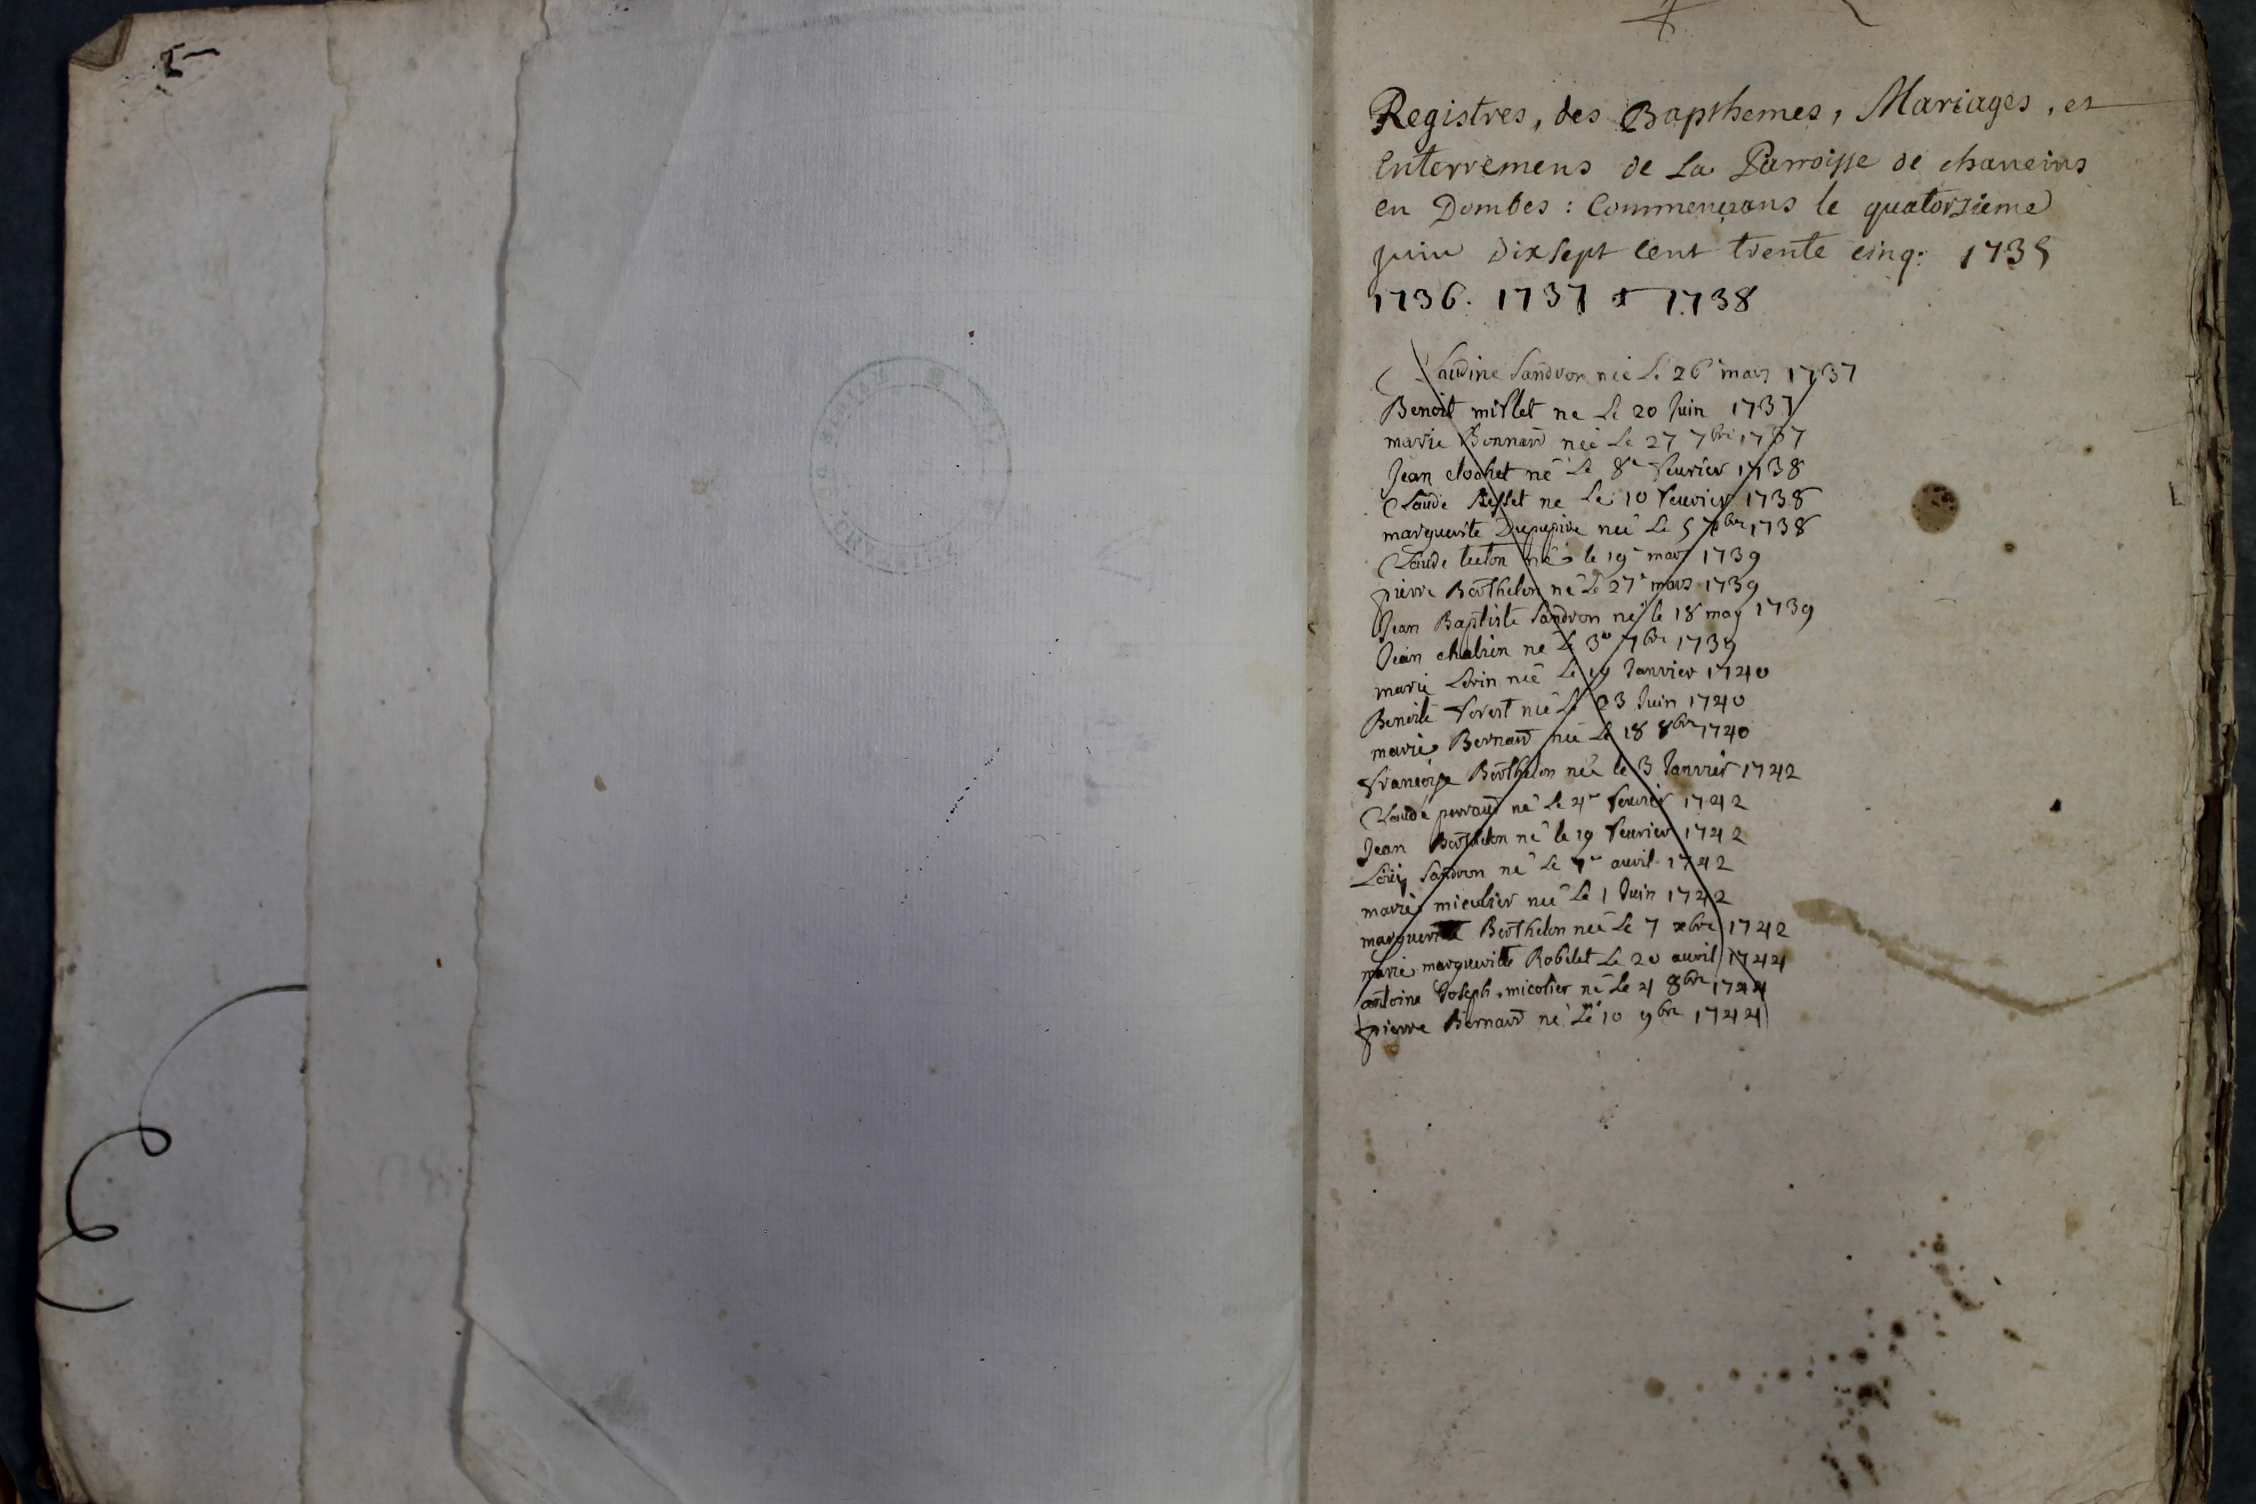 Registres, des Bapthemes, Mariages, et
Enterremens de La Parroisse de chaneins
en Dombes : Commençans le quatorsieme
juin Dix sept Cent trente cinq. 1735
1736. 1737 et 1738
Claudine Sandron neé Le 26 mars 1737
Benoit millet ne Le 20 Juin 1737
marie Bonnard neé Le 27 7bre 1737
Jean clochet né Le 8e feurier 1738
Claude Besset ne Le 10 feurier 1738
marguerite née Le 5 7bre 1738
Claude né le 19e mars 1739
pierre Berthelon né Le 27e mars 1739
Jean Baptiste Sandron né le 18 may 1739
Jean chabrin né Le 3e 7bre 1739
marie née Le 19 Janvier 1740
Benoite forest née Le 23 Juin 1740
marie Bernard née Le 18 8bre 1740
francoise Berthelon née le 3 Janvier 1742
Claude perraud né Le 4e feurier 1742
Jean Berthelon né le 19 feurier 1742
Loüis Sandron né Le 7e auril 1742
marie miculier née Le 1 Juin 1742
marguerite Berthelon née Le 7 xbre 1742
marie marguerite Robelet Le 20 auril 1744
antoine Joseph micolier né Le 4 8bre 1744
pierre Bernard né Le 10 9bre 1744